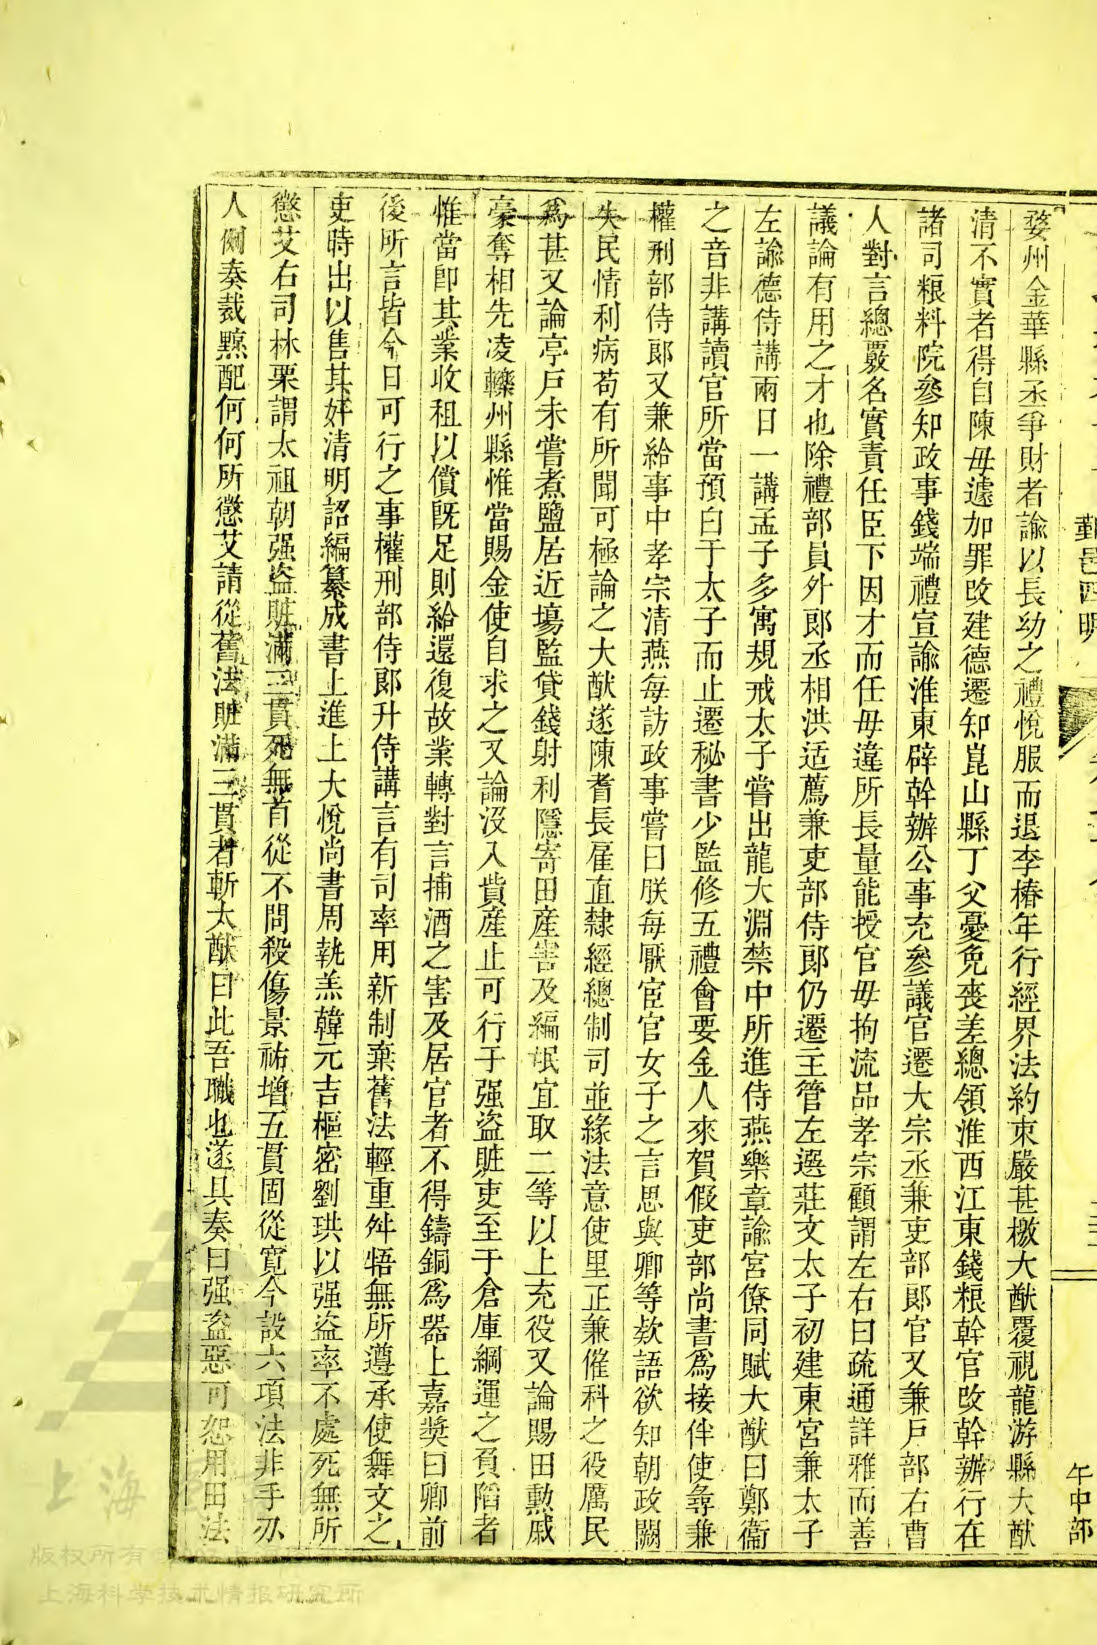 鄞邑西
午中部
婺州金華縣丞爭財者諭以長幼之禮悅服而退李椿年行經界法約束嚴甚檄大猷覆視龍游縣大猷
清不實者得自陳毋遽加罪改建德遷知崑山縣丁父憂免喪差總領淮西江東錢粮幹官改幹辦行在
諸司粮料院參知政事錢端禮宣諭淮東辟幹辦公事充參議官遷大宗丞兼吏部郎官又兼戶部右曹
人對言總覈名實責任臣下因才而任毋違所長量能授官毋拘流品孝宗顧謂左右曰疏通詳雅而善
議論有用之才也除禮部員外郎丞相洪适薦兼吏部侍郎仍遷主管左選莊文太子初建東宮兼太子
左諭德侍講兩日一講孟子多寓規戒太子嘗出龍大淵禁中所進侍燕樂章諭宮僚同賦大猷曰鄭衞
之音非講讀官所當預白于太子而止遷秘書少監修五禮會要金人來賀假吏部尚書爲接伴使尋兼
權刑部侍郎又兼給事中孝宗清燕每訪政事嘗曰朕每厭宦官女子之言思與卿等欵語欲知朝政闕
失民情利病苟有所聞可極論之大猷遂陳耆長雇直隸經總制司並緣法意使里正兼催科之役厲民
爲甚又論亭戶未嘗煮鹽居近塲監貸錢射利隱寄田產害及編氓宜取二等以上充役又論賜田勲戚
豪奪相先凌轢州縣惟當賜金使自求之又論沒入貲產止可行于强盜贓吏至于倉庫綱運之負陷者
惟當卽其業收租以償旣足則給還復故業轉對言捕酒之害及居官者不得鑄銅爲器上嘉奬曰卿前
後所言皆今日可行之事權刑部侍郎升侍講言有司率用新制棄舊法輕重舛牾無所遵承使舞文之
吏時出以售其奸清明詔編纂成書上進上大悅尚書周執羔韓元吉樞密劉珙以强盜率不處死無所
懲艾右司林栗謂太祖朝强盜贓滿三貫死無首從不問殺傷景祐增五貫固從寬今設六項法非手刃
人例奏裁黥配何何所懲艾請從舊法贓滿三貫者斬大猷曰此吾職也遂具奏曰强盜惡可恕用田法
上海
版权所有
上海科学技术情报研究所